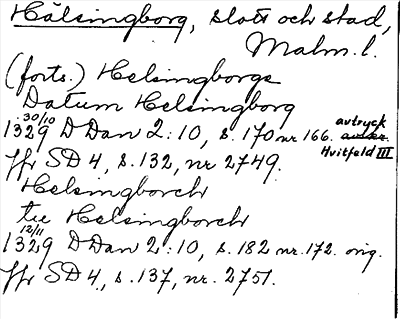 Hälsingborg, slott och stad,
Malm. l.
(forts.) Helsingborgs
Datum Helsingborg
30/10
1329 D Dan 2:10, s. 170 nr 166. avtryck
Hvitfeld III
Jfr SD 4, s. 132, nr 2749.
Helsingborch
til Helsingborch
12/11
1329 D Dan 2:10, s. 182 nr. 172. orig.
Jfr SD 4, s. 137, nr. 2751.